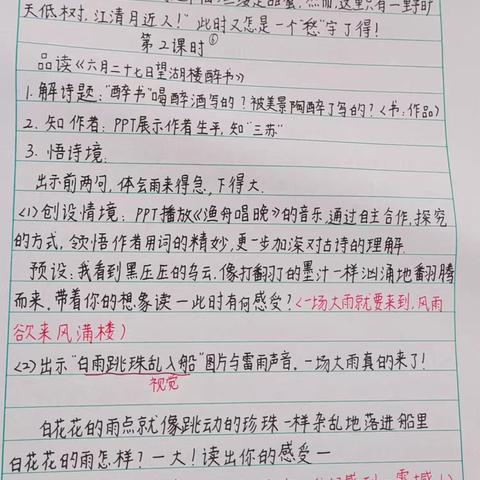 然而,这里只有一野旷
天低树,江清月近人!"此时又怎是一个"愁"字了得!
第2课时⑥
品读《六月二十七日望湖楼醉书》
1.解诗题:"醉书"喝醉酒写的?被美景陶醉了写的?(书:作品)
2.知作者:PPT展示作者生平,知"三苏"
3.悟诗境:
出示前两句,体会雨来得急,下得大.
<1>创设情境:PPT播放《渔舟唱晚》的音乐,通过自主合作,探究
的方式,领悟作者用词的精妙,更一步加深对古诗的理解.
预设:我看到黑压压的乌云,像打翻了的墨汁一样汹涌地翻腾
而来.带着你的想象读一此时有何感受?<一场大雨就要来到,风雨
欲来风满楼)
<2>出示"白雨跳珠乱入船"图片与雷雨声音.一场大雨真的来了!
视觉
白花花的雨点就像跳动的珍珠一样杂乱地落进船里
白花花的雨怎样?一大!读出你的感受一